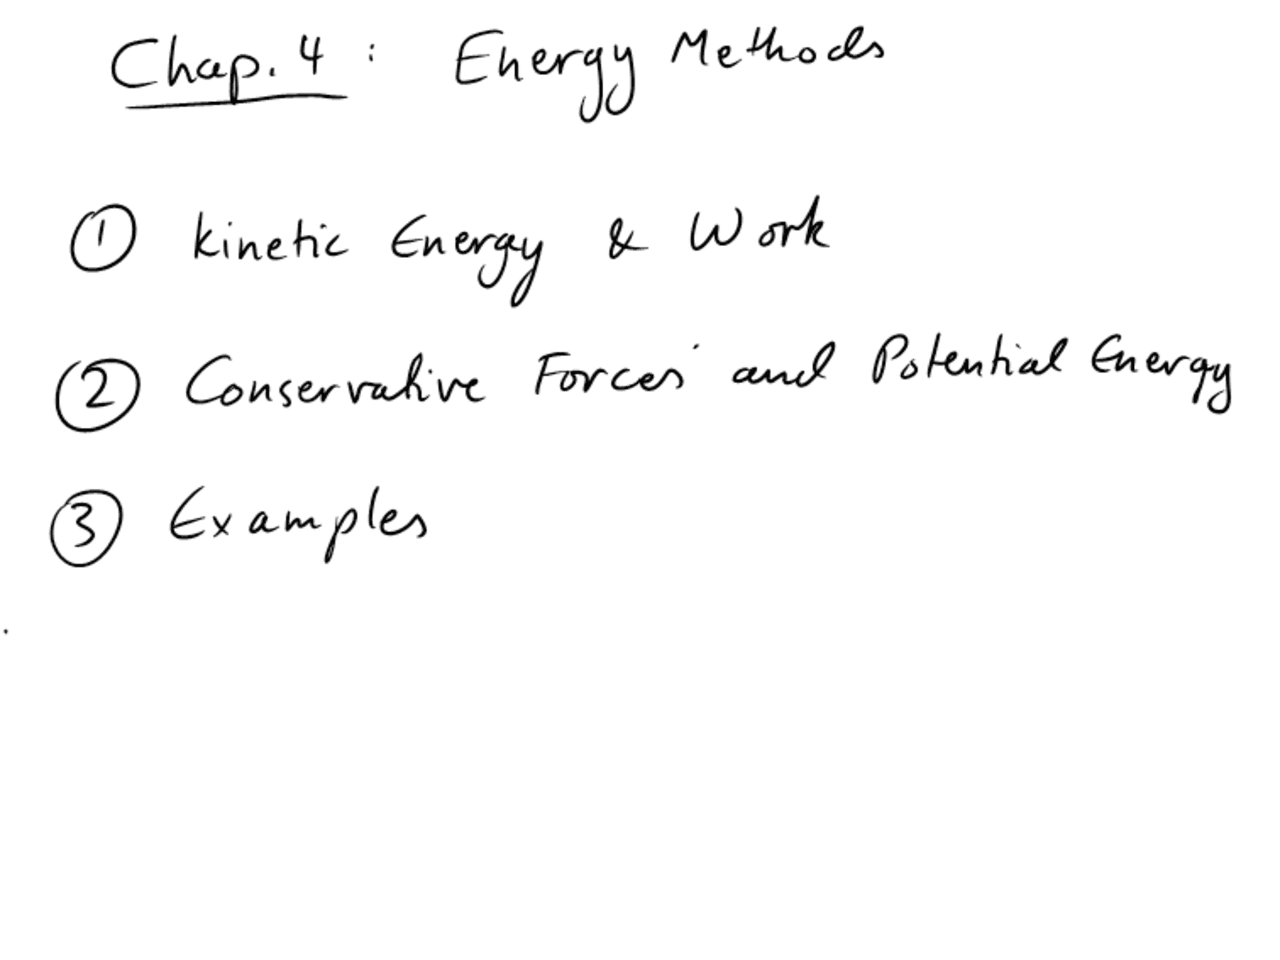 Chap. 4 : Energy Methods
① Kinetic Energy & Work
② Conservative Forces and Potential Energy
③ Examples